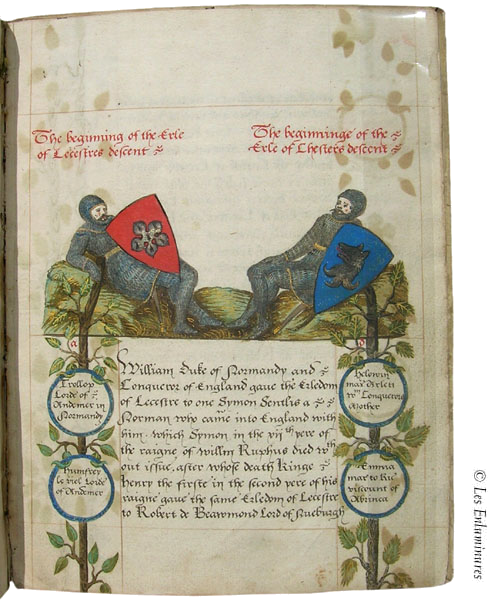 The beginning of the Erle
of Leicestres descent
The beginninge of the
Erle of Chesters descent
a
William Duke of Normandy and
Conqueror of England gaue the Erledom
of Lecestre to one Symon Sentlis a
Norman who came into England with
him. which Symon in the vijth yere of
the raigne of willm Ruphus died wth
out issue, after whose death Kinge
henry the firste in the second yere of his
raigne gaue the same Erledom of Lecestre
to Robert de Beawmond Lord of Nueburgh
Trollop
Lorde of
Andemer in
Normandy
humfrey
le viel Lorde
of Andemer
Helewin
mar
wm Conquerors
Mother
Emma
mar to
viscount of
Abrinca
© Les Enluminures